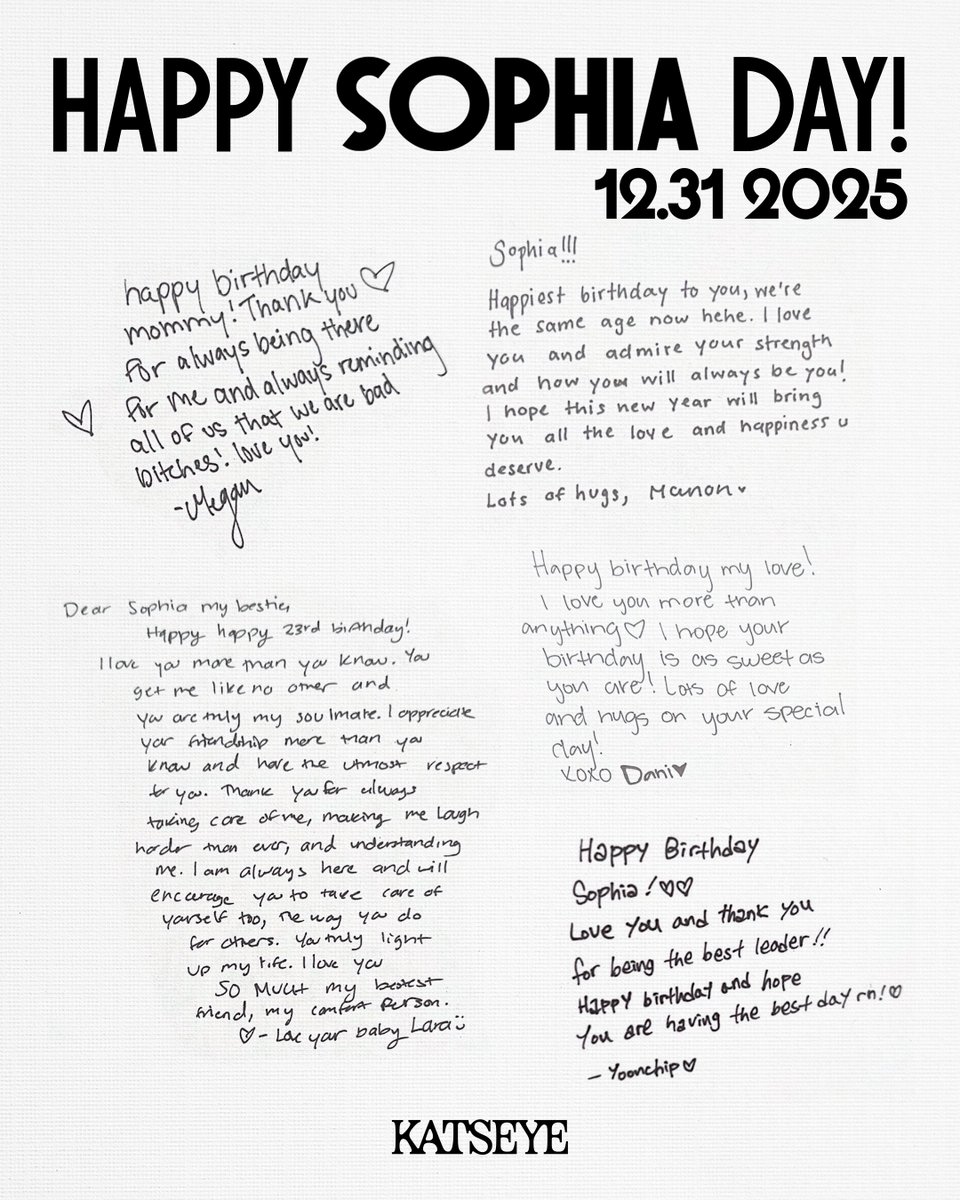 HAPPY SOPHIA DAY!
12.31 2025
happy birthday
mommy! Thank you ♡
for always being there
for me and always reminding
all of us that we are bad
bitches! love you!
-Megan
Sophia!!!
Happiest birthday to you, we're
the same age now hehe. I love
you and admire your strength
and how you will always be you!
I hope this new year will bring
you all the love and happiness u
deserve.
Lots of hugs, Manon♥
Dear Sophia my bestie,
Happy happy 23rd birthday!
I love you more than you know. You
get me like no other and
you are truly my soulmate. I appreciate
your friendship more than you
know and have the utmost respect
for you. Thank you for always
taking care of me, making me laugh
harder than ever, and understanding
me. I am always here and will
encourage you to take care of
yourself too, the way you do
for others. You truly light
up my life. I love you
SO MUCH my bestest
friend, my comfort person.
♡ - Love your baby Lara :)
Happy birthday my love!
I love you more than
anything♡ I hope your
birthday is as sweet as
you are! Lots of love
and hugs on your special
day!
xoxo Dani♥
Happy Birthday
Sophia!♡♡
Love you and thank you
for being the best leader!!
Happy birthday and hope
You are having the best day rn!♡
- Yoonchip♡
KATSEYE